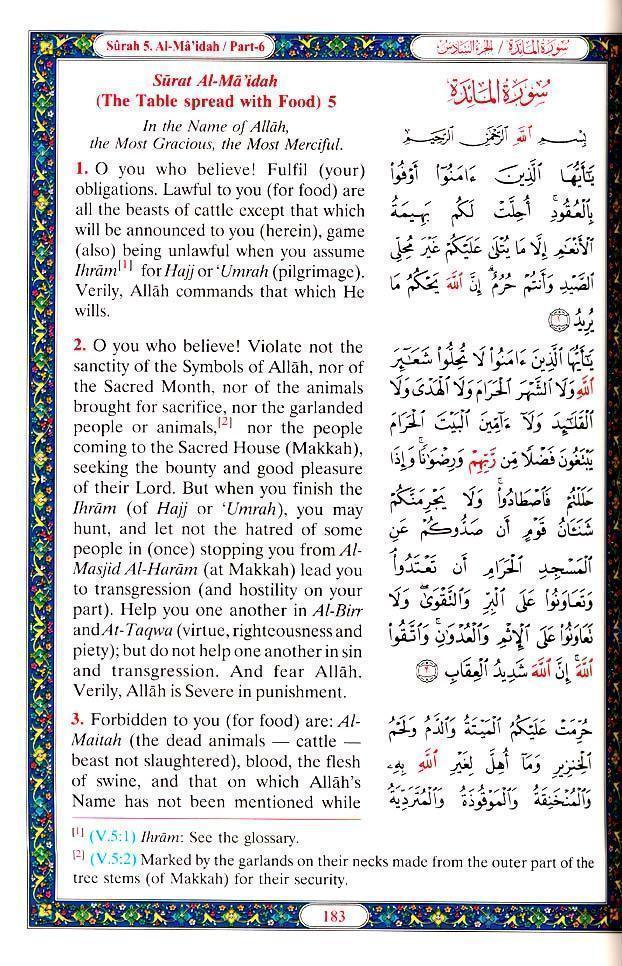 Sûrah 5. Al-Mâ'idah / Part-6
سورة المائدة / الجزء السادس
Sūrat Al-Mā'idah
(The Table spread with Food) 5
In the Name of Allāh,
the Most Gracious, the Most Merciful.
1. O you who believe! Fulfil (your)
obligations. Lawful to you (for food) are
all the beasts of cattle except that which
will be announced to you (herein), game
(also) being unlawful when you assume
Ihrām[1] for Hajj or ‘Umrah (pilgrimage).
Verily, Allāh commands that which He
wills.
2. O you who believe! Violate not the
sanctity of the Symbols of Allāh, nor of
the Sacred Month, nor of the animals
brought for sacrifice, nor the garlanded
people or animals,[2] nor the people
coming to the Sacred House (Makkah),
seeking the bounty and good pleasure
of their Lord. But when you finish the
Ihrām (of Hajj or ‘Umrah), you may
hunt, and let not the hatred of some
people in (once) stopping you from Al-
Masjid Al-Harām (at Makkah) lead you
to transgression (and hostility on your
part). Help you one another in Al-Birr
and At-Taqwa (virtue, righteousness and
piety); but do not help one another in sin
and transgression. And fear Allāh.
Verily, Allāh is Severe in punishment.
3. Forbidden to you (for food) are: Al-
Maitah (the dead animals — cattle —
beast not slaughtered), blood, the flesh
of swine, and that on which Allāh's
Name has not been mentioned while
سُورَةُ المَائِدَةِ
بِسْمِ اللَّهِ الرَّحْمَٰنِ الرَّحِيمِ
يَٰٓأَيُّهَا الَّذِينَ ءَامَنُوٓا أَوْفُوا
بِالْعُقُودِ ۚ أُحِلَّتْ لَكُم بَهِيمَةُ
الْأَنْعَٰمِ إِلَّا مَا يُتْلَىٰ عَلَيْكُمْ غَيْرَ مُحِلِّى
الصَّيْدِ وَأَنتُمْ حُرُمٌ ۗ إِنَّ اللَّهَ يَحْكُمُ مَا
يُرِيدُ ١
يَٰٓأَيُّهَا الَّذِينَ ءَامَنُوا لَا تُحِلُّوا شَعَٰٓئِرَ
اللَّهِ وَلَا الشَّهْرَ الْحَرَامَ وَلَا الْهَدْىَ وَلَا
الْقَلَٰٓئِدَ وَلَآ ءَآمِّينَ الْبَيْتَ الْحَرَامَ
يَبْتَغُونَ فَضْلًا مِّن رَّبِّهِمْ وَرِضْوَٰنًا ۚ وَإِذَا
حَلَلْتُمْ فَاصْطَادُوا ۚ وَلَا يَجْرِمَنَّكُمْ
شَنَـَٔانُ قَوْمٍ أَن صَدُّوكُمْ عَنِ
الْمَسْجِدِ الْحَرَامِ أَن تَعْتَدُوا ۘ
وَتَعَاوَنُوا عَلَى الْبِرِّ وَالتَّقْوَىٰ ۖ وَلَا
تَعَاوَنُوا عَلَى الْإِثْمِ وَالْعُدْوَٰنِ ۚ وَاتَّقُوا
اللَّهَ ۖ إِنَّ اللَّهَ شَدِيدُ الْعِقَابِ ٢
حُرِّمَتْ عَلَيْكُمُ الْمَيْتَةُ وَالدَّمُ وَلَحْمُ
الْخِنزِيرِ وَمَآ أُهِلَّ لِغَيْرِ اللَّهِ بِهِۦ
وَالْمُنْخَنِقَةُ وَالْمَوْقُوذَةُ وَالْمُتَرَدِّيَةُ
[1] (V.5:1) Ihrām: See the glossary.
[2] (V.5:2) Marked by the garlands on their necks made from the outer part of the
tree stems (of Makkah) for their security.
183